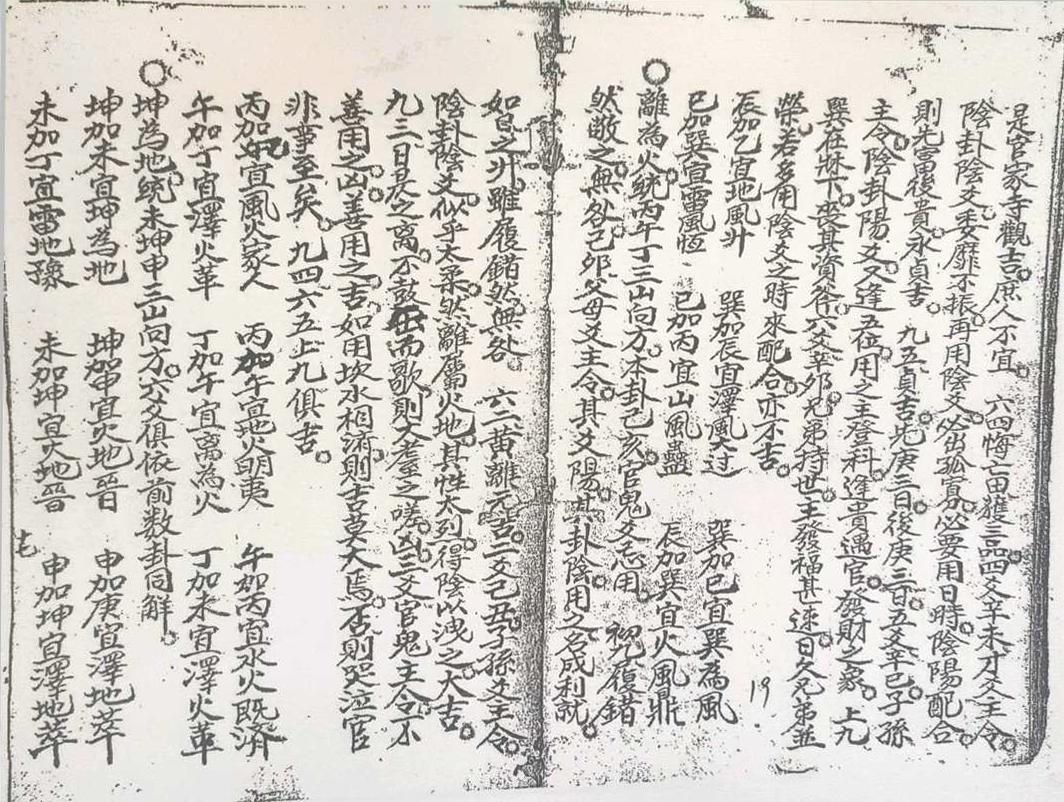 是官家寺觀吉。庶人不宜。 六四悔亡田獲三品四爻辛未才爻主令。
陰卦陰爻委靡不振。再用陰爻。必出孤寡。必要用日時。陰陽配合。
則先富後貴。永貞吉。 九五貞吉。先庚三日。後庚三日。五爻辛巳子孫
主令。陰卦陽爻。又逢五位。用之主登科。逢貴遇官。發財之象。 上九
巽在牀下。喪其資斧。六爻辛卯兄弟持世。主發福甚速。日久兄弟並
榮。若多用陰爻之時來配合。亦不吉。
辰加乙宜地風升 巽加辰宜澤風大过 巽加巳宜巽為風
巳加巽宜雷風恆 巳加丙宜山風蠱 辰加巽宜火風鼎
19
○離為火。統丙午丁三山向方。本卦己亥官鬼爻忌用。 初九履錯
然敬之。無咎。己卯父母爻主令。其爻陽。其卦陰。用之名成利就。
如日之升。雖履錯然。無咎。 六二黃離元吉。二爻己丑子孫爻主令。
陰卦陰爻。似乎太柔。然離屬火地。其性大烈。得陰以洩之。大吉。
九三日昃之离。不鼓缶而歌。則大耋之嗟。凶。三爻官鬼主令。不
善用之。凶。善用之。吉。如用坎水相濟。則吉莫大焉。否則哭泣官
非事至矣。 九四六五上九俱吉。
丙加巳宜風火家人 丙加午宜地火明夷 午加丙宜水火既濟
午加丁宜澤火革 丁加午宜离為火 丁加未宜澤火革
○坤為地。統未坤申三山向方。六爻俱依前数卦同解。
坤加未宜坤為地 坤加申宜火地晉 申加庚宜澤地萃
未加丁宜雷地豫 未加坤宜火地晉 申加坤宜澤地萃